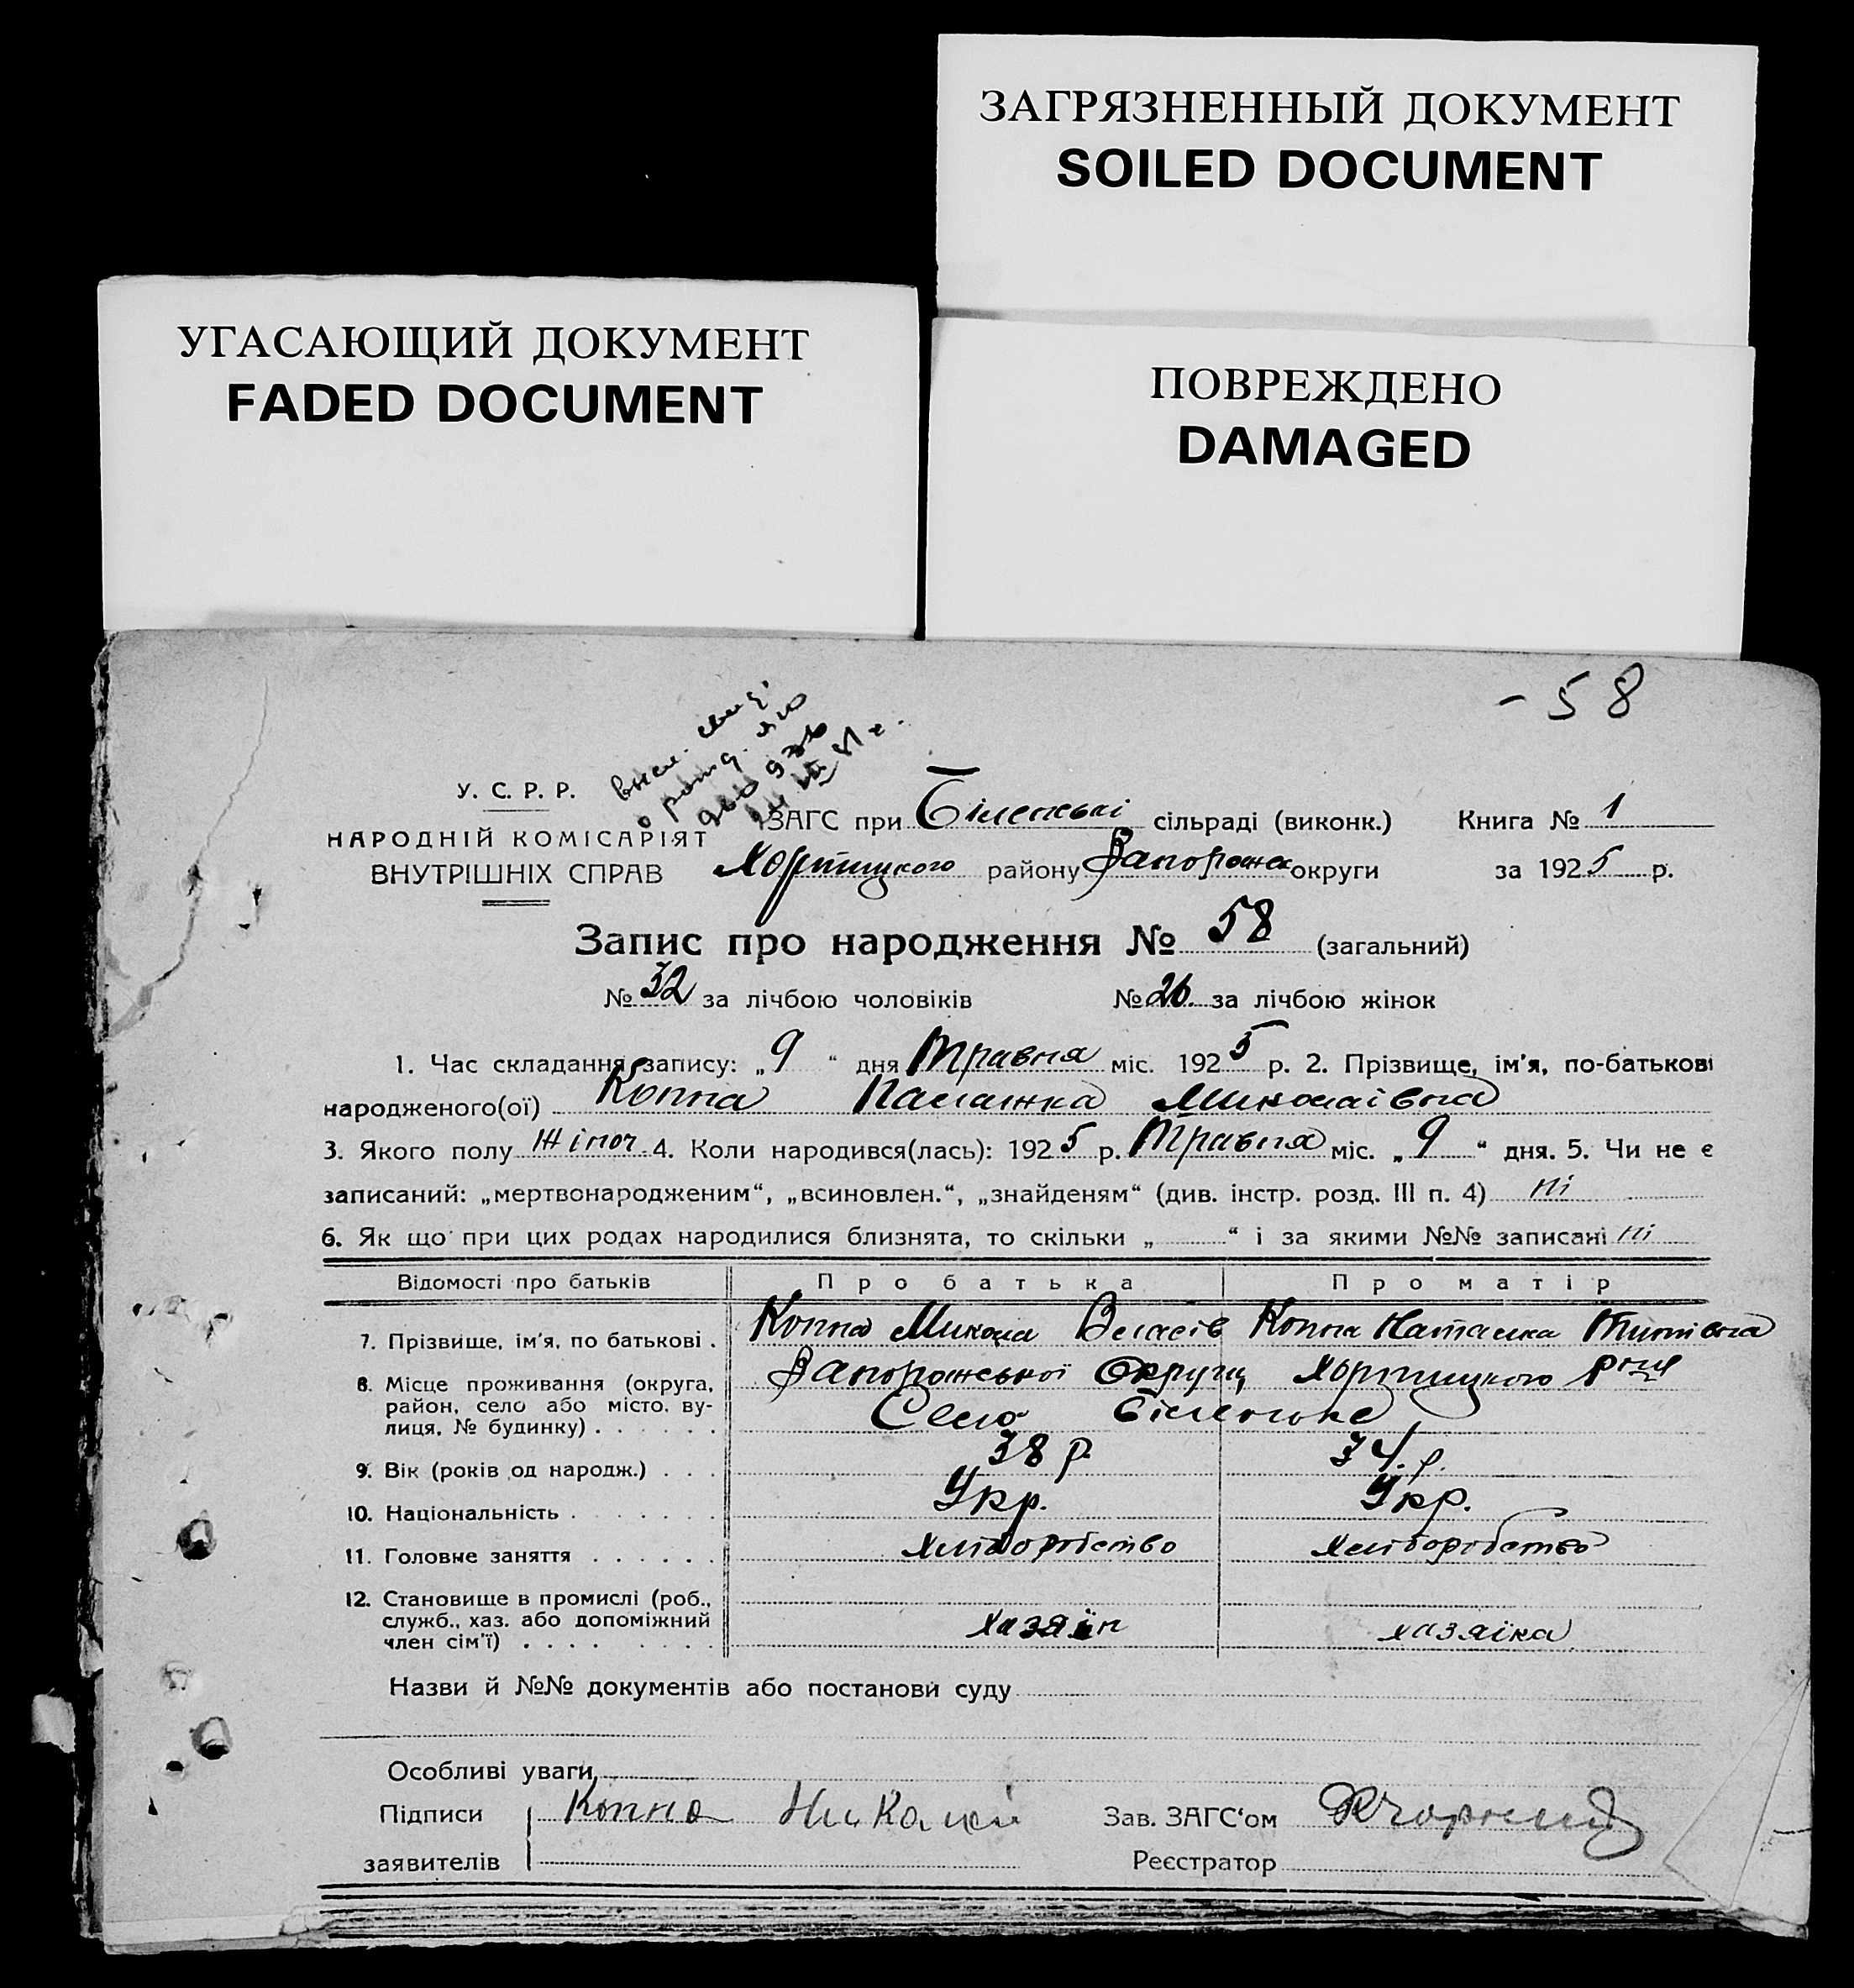 ЗАГРЯЗНЕННЫЙ ДОКУМЕНТ
SOILED DOCUMENT
УГАСАЮЩИЙ ДОКУМЕНТ
FADED DOCUMENT
ПОВРЕЖДЕНО
DAMAGED
- 58
У. С. Р. Р.
НАРОДНІЙ КОМІСАРІЯТ
ВНУТРІШНІХ СПРАВ
ЗАГС при Біленькі сільраді (виконк.) Книга № 1
Хортицького району Запорожс округи за 1925 р.
Запис про народження № 58 (загальний)
№ 32 за лічбою чоловіків № 26. за лічбою жінок
1. Час складання запису: „ 9 “ дня Травня міс. 1925 р. 2. Прізвище, ім'я, по-батькові
народженого(ої) Копна Палажка Миколаівна
3. Якого полу Жіноч. 4. Коли народився(лась): 1925 р. Травня міс. „ 9 “ дня. 5. Чи не є
записаний: „мертвонародженим“, „всиновлен.“, „знайденям“ (див. інстр. розд. III п. 4) ні
6. Як що при цих родах народилися близнята, то скільки „ “ і за якими №№ записані ні
Відомості про батьків Про батька Про матір
7. Прізвище, ім'я, по батькові . Копна Микола Власів Копна Наталка Титівна
8. Місце проживання (округа, Запорожської Округи Хортицького
район, село або місто, ву- Село Біленьке
лиця, № будинку) . . . . . .
9. Вік (років од народж.) . . . 38 р. 34. р.
10. Національність . . . . . . . Укр. Укр.
11. Головне заняття . . . . . . хліборобство хліборобство
12. Становище в промислі (роб.,
служб., хаз. або допоміжний хазяїн хазяіка
член сім'ї) . . . . . . . .
Назви й №№ документів або постанови суду
Особливі уваги
Підписи Копна Николай Зав. ЗАГС‘ом
заявителів Реєстратор